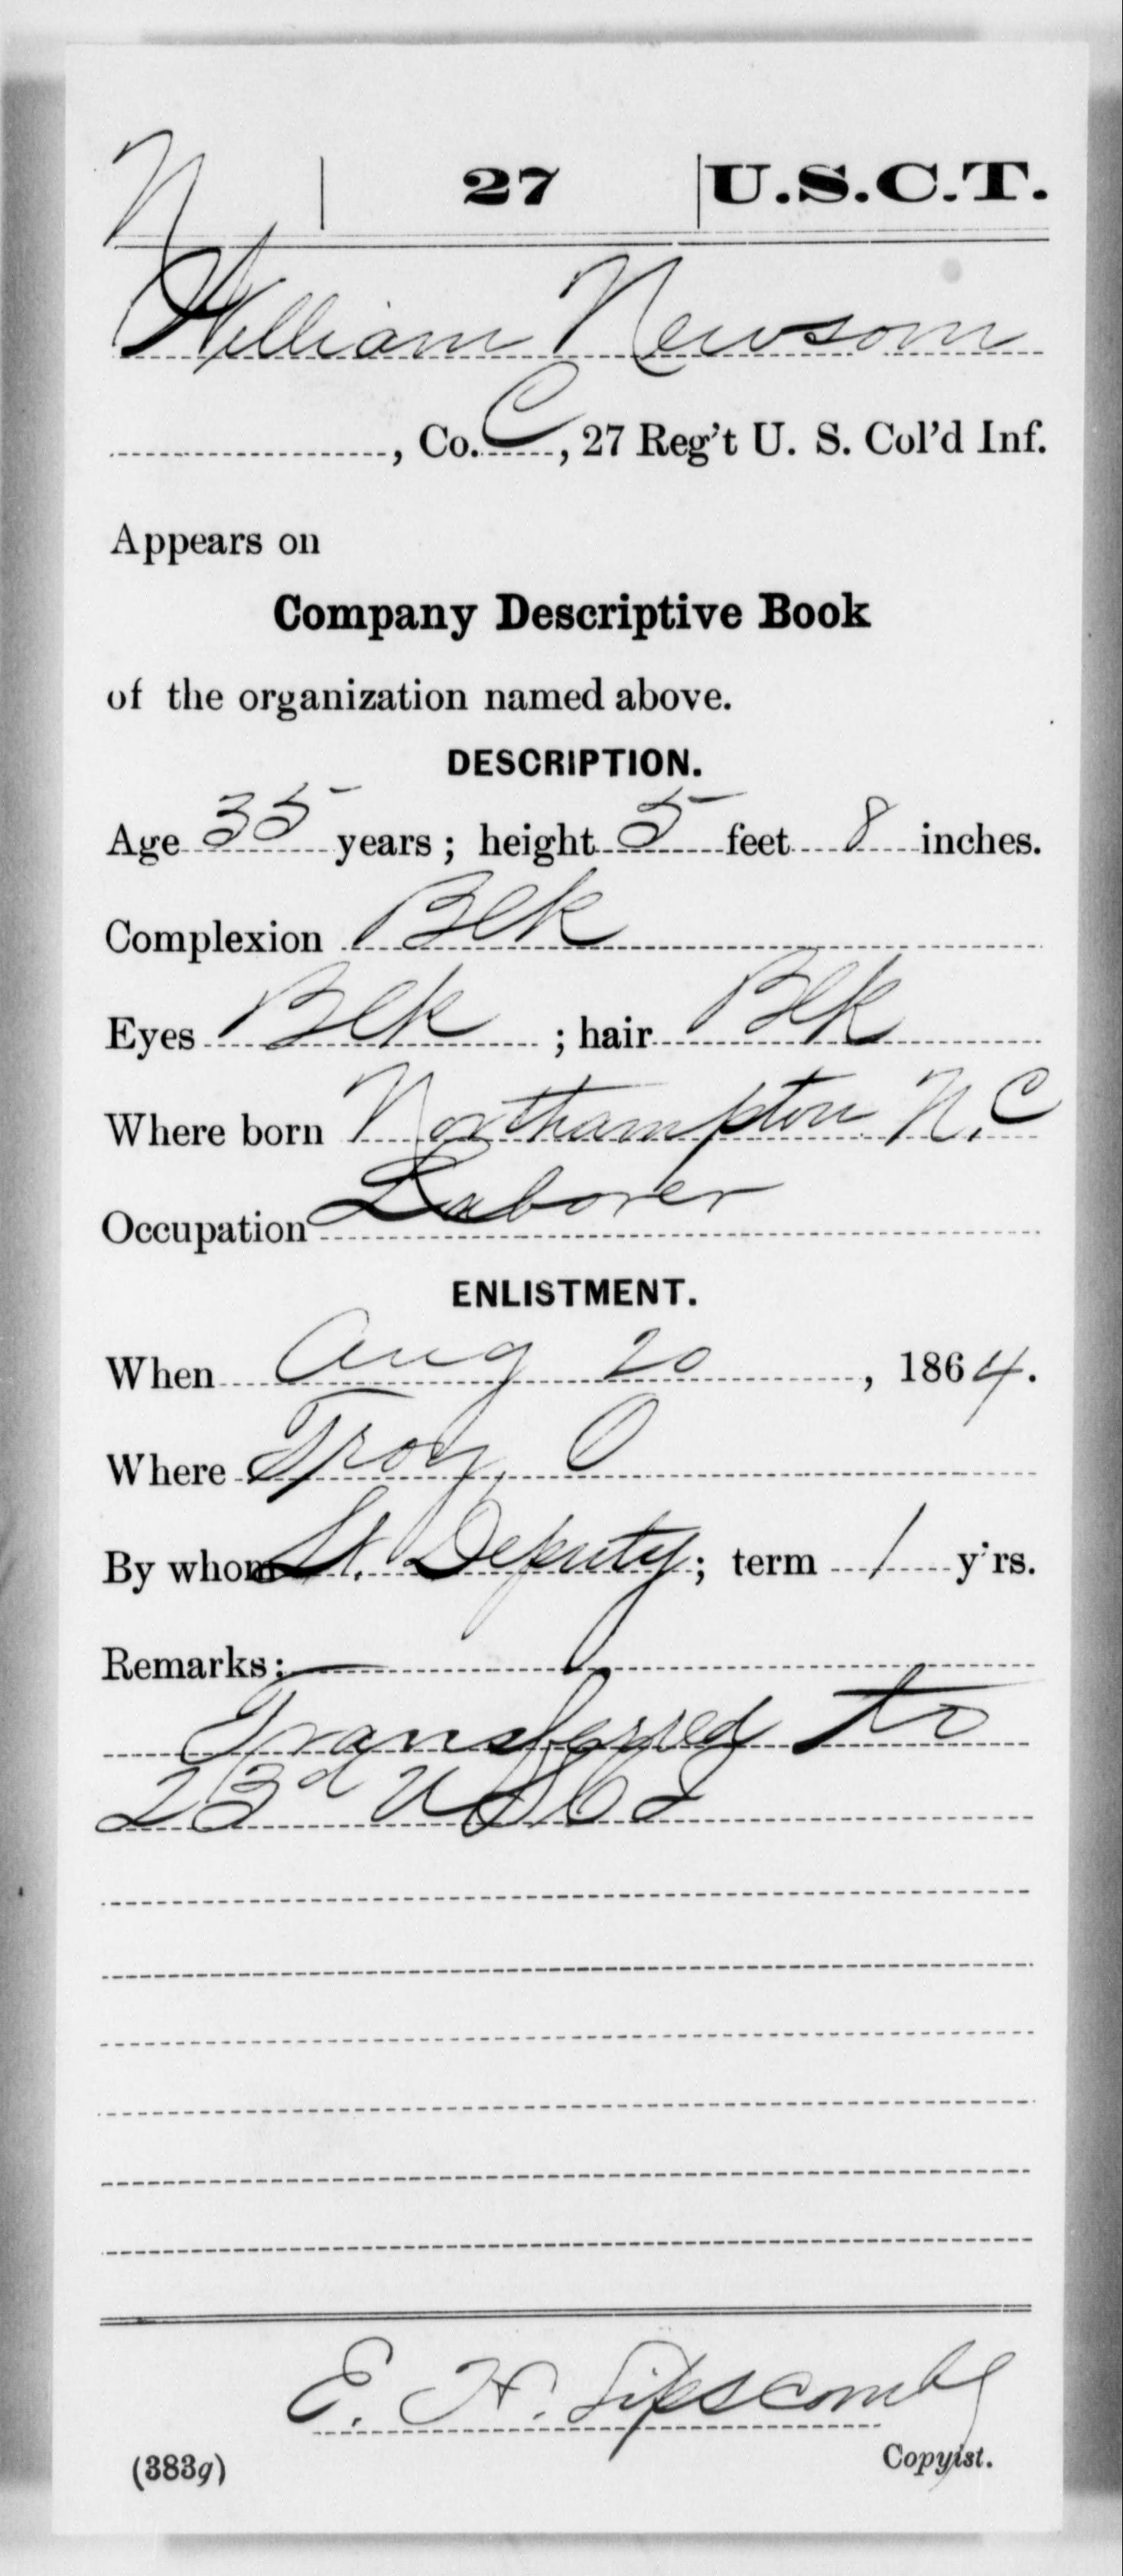 N | 27 | U.S.C.T.
William Newsom
, Co. C, 27 Reg't U. S. Col'd Inf.
Appears on
Company Descriptive Book
of the organization named above.
DESCRIPTION.
Age 35 years; height 5 feet 8 inches.
Complexion Blk
Eyes Blk; hair Blk
Where born Northampton N.C
Occupation Laborer
ENLISTMENT.
When Aug 20, 1864.
Where Troy, O
By whom Lt. Deputy; term 1 y'rs.
Remarks:
Transferred to
23d USCI
E. H. Lipscomb
Copyist.
(383g)